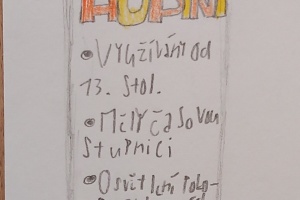 • VYUŽÍVÁNÍ OD
13. stol.
• Měly časovou
stupnici
• Osvětlení poko-